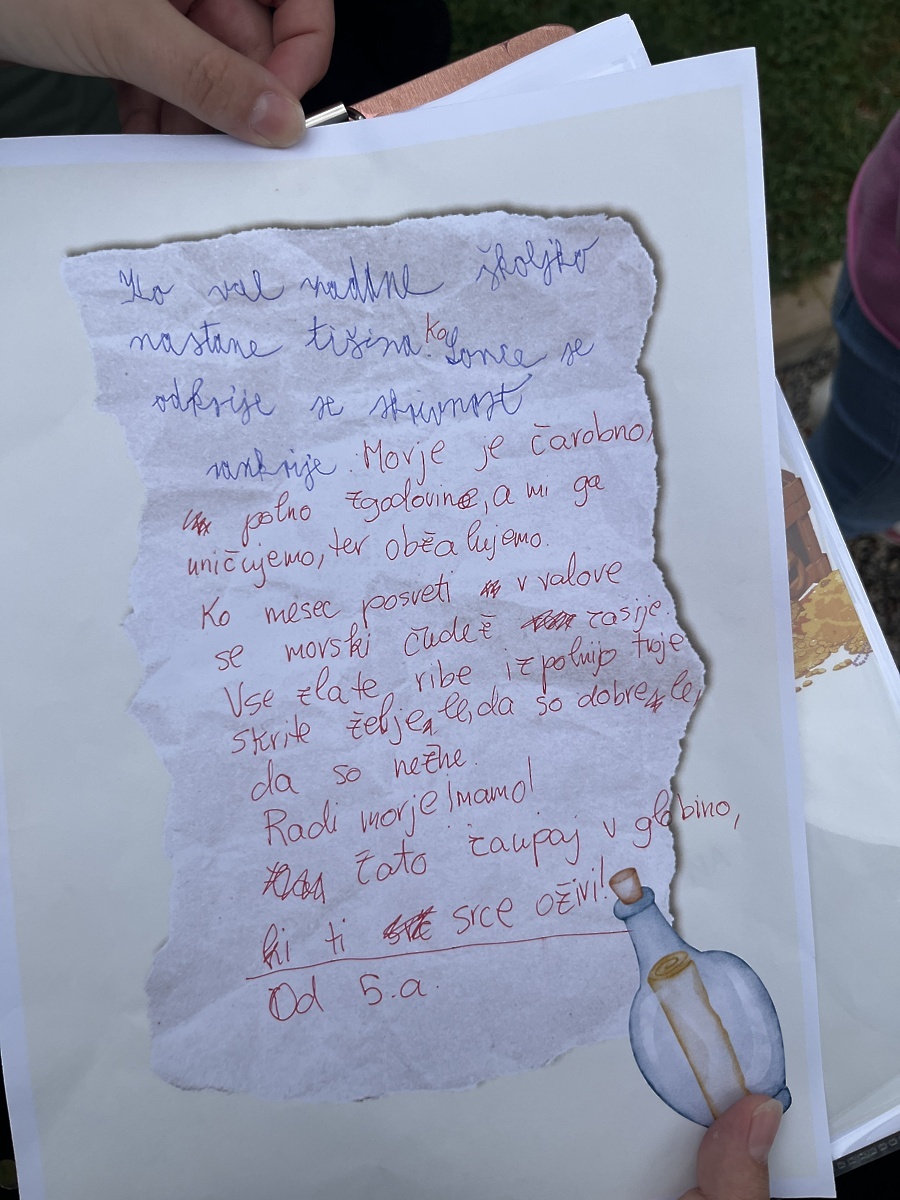 Ko val nadene školjko
nastane tišina. Ko Sonce se
odkrije se skrivnost
razkrije. Morje je čarobno,
polno zgodovine, a mi ga
uničujemo, ter obžalujemo.
Ko mesec posveti v valove
se morski čudež zasije.
Vse zlate ribe izpolnijo tvoje
skrite želje, le, da so dobre, le,
da so nežne.
Radi morje imamo!
Zato zaupaj v globino,
ki ti srce oživi!
Od 5.a.